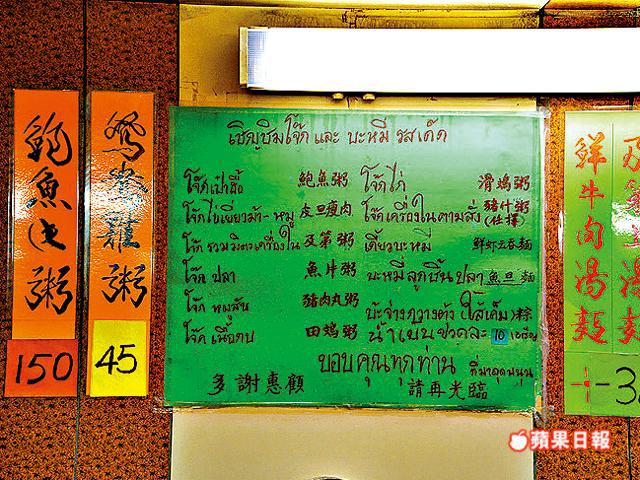 鮑魚
粥
150
雞粥
45
เชิญชิมโจ๊ก และ บะหมี่ รสเด็ด
โจ๊กเป๋าฮื้อ 鮑魚粥
โจ๊กไข่เยี่ยวม้า-หมู 皮旦瘦肉
โจ๊ก รวมมิตรเครื่องใน 及第粥
โจ๊ก ปลา 魚片粥
โจ๊ก หมูสับ 豬肉丸粥
โจ๊ก เนื้อกบ 田鸡粥
โจ๊กไก่ 滑鸡粥
โจ๊กเครื่องในตามสั่ง 豬什粥 (任擇)
เกี๊ยวบะหมี่ 鮮虾云吞麵
บะหมี่ลูกชิ้น ปลา 魚旦 麵
บ๊ะจ่างกวางตุ้ง (ไส้เค็ม) 粽
น้ำเย็นขวดละ 10
ขอบคุณทุกท่าน ที่มาอุดหนุน
多謝惠顧 請再光臨
鮮牛肉湯麵
湯麵
蘋果日報